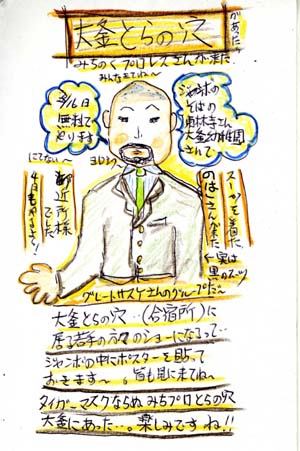 大釡とらの穴
があた。
みちのくプロレスさんが来た
みんな来てね〜
3/16日
無料で
やります
ジャンボの
そばの
東林寺さん
大釡幼稚園
されて
にてない〜
ヨロシク
スーツを着た
のはさんが来た
実は
黒のスーツ
御近所様
でした
4月もやるそうよ!
グレートサスケさんのグループだ〜
大釡とらの穴‥(合宿所)に
居る若手の方々のショーになるって‥
ジャンボの中にポスターを貼って
おきます〜。皆も見に来てね〜
タイガーマスクならぬみちプロとらの穴
大釡にあった‥。楽しみですね!!